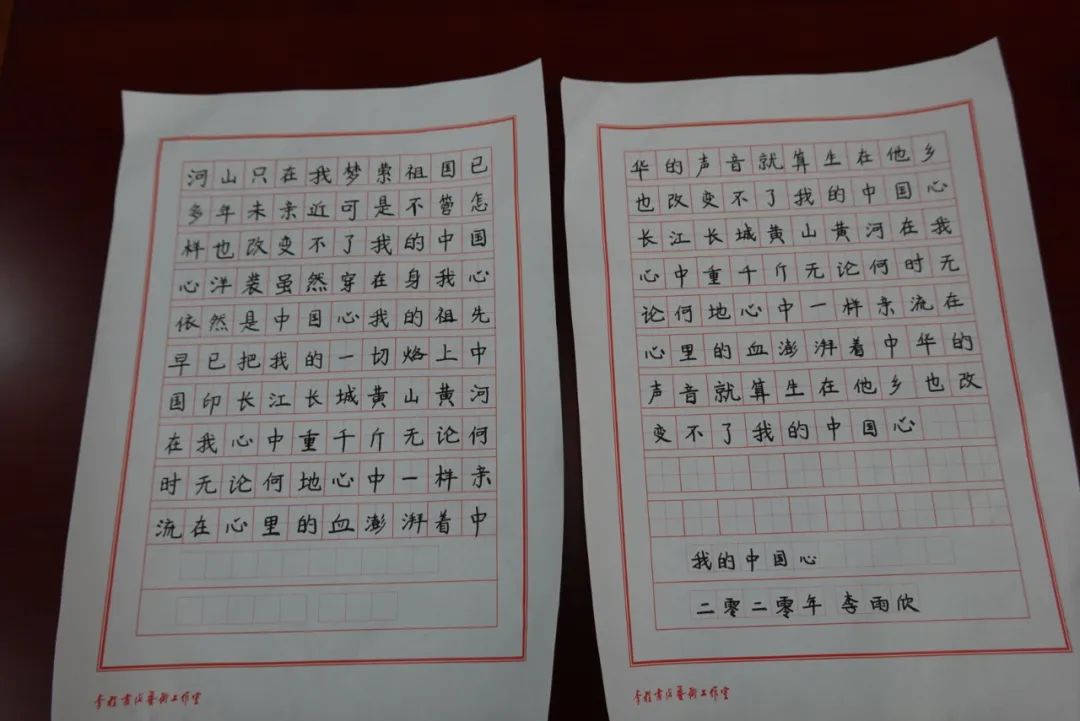 河山只在我梦萦祖国已
多年未亲近可是不管怎
样也改变不了我的中国
心洋装虽然穿在身我心
依然是中国心我的祖先
早已把我的一切烙上中
国印长江长城黄山黄河
在我心中重千斤无论何
时无论何地心中一样亲
流在心里的血澎湃着中
华的声音就算生在他乡
也改变不了我的中国心
长江长城黄山黄河在我
心中重千斤无论何时无
论何地心中一样亲流在
心里的血澎湃着中华的
声音就算生在他乡也改
变不了我的中国心
我的中国心
二零二零年 李雨欣